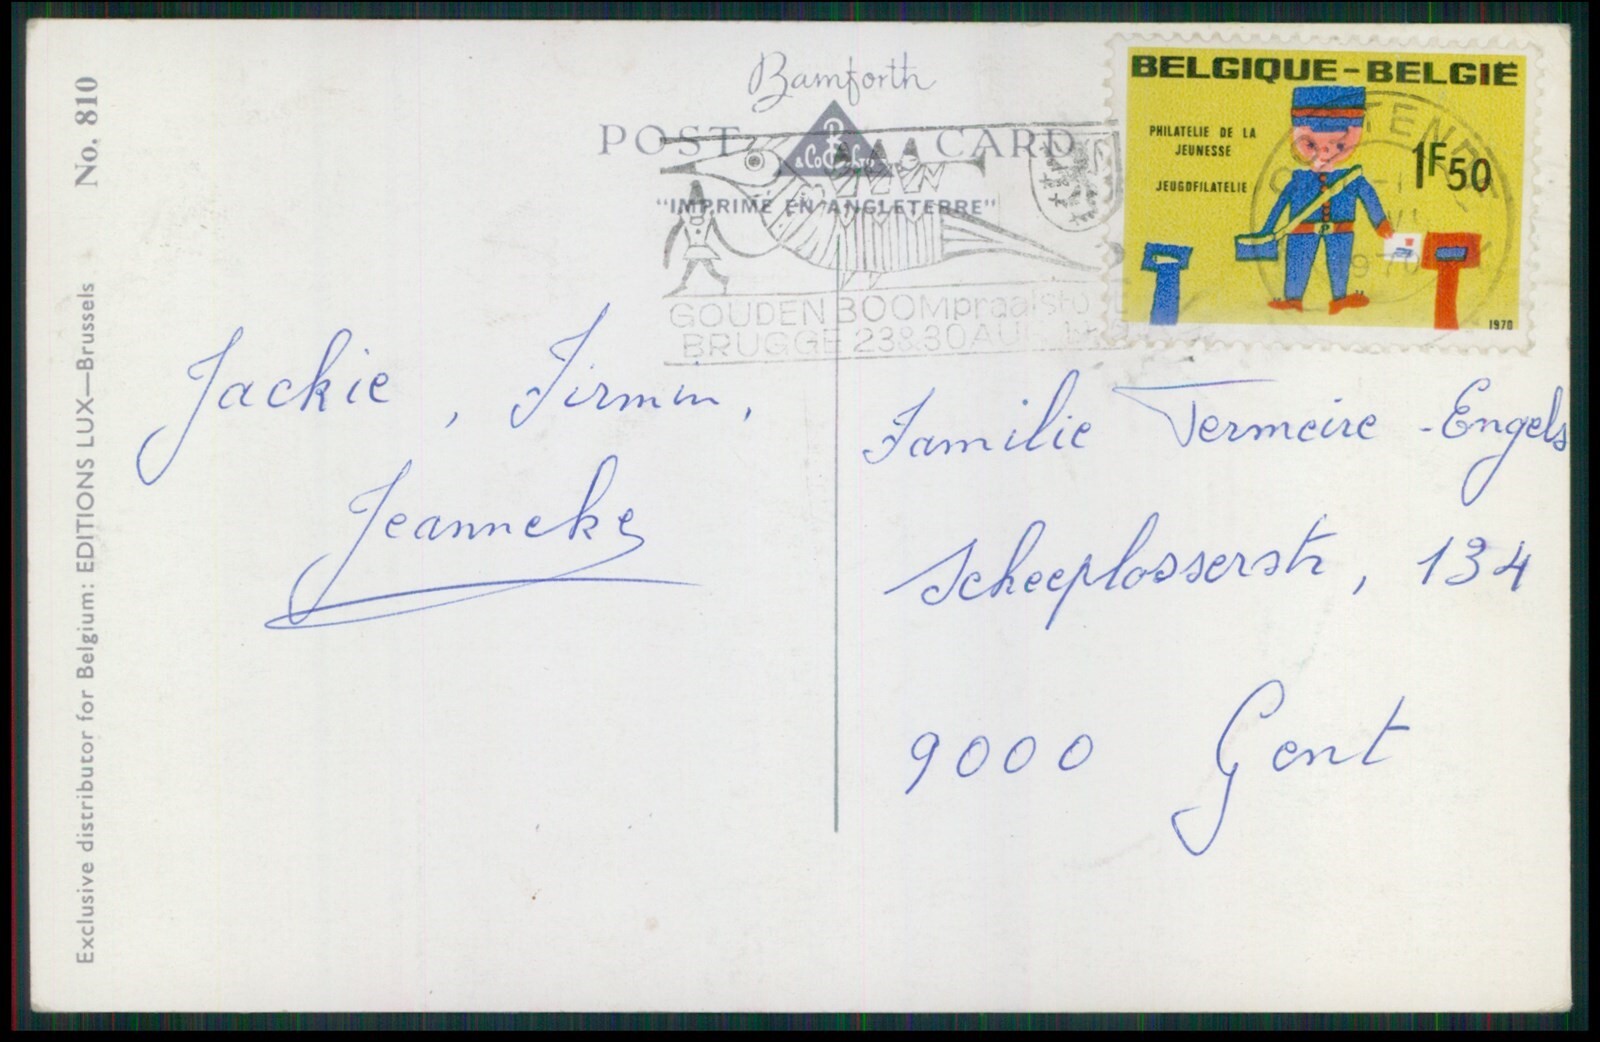 No. 810
Exclusive distributor for Belgium: EDITIONS LUX—Brussels
Bamforth
POST CARD
& Co Ltd
"IMPRIMÉ EN ANGLETERRE"
GOUDEN BOOMpraalsto
BRUGGE 23&30AU
BELGIQUE-BELGIË
PHILATELIE DE LA
JEUNESSE
JEUGDFILATELIE
1F50
P
1970
1970
Jackie, Firmin,
Jeanneke
Familie Termeire - Engels
Scheeplosserstr, 134
9000 Gent